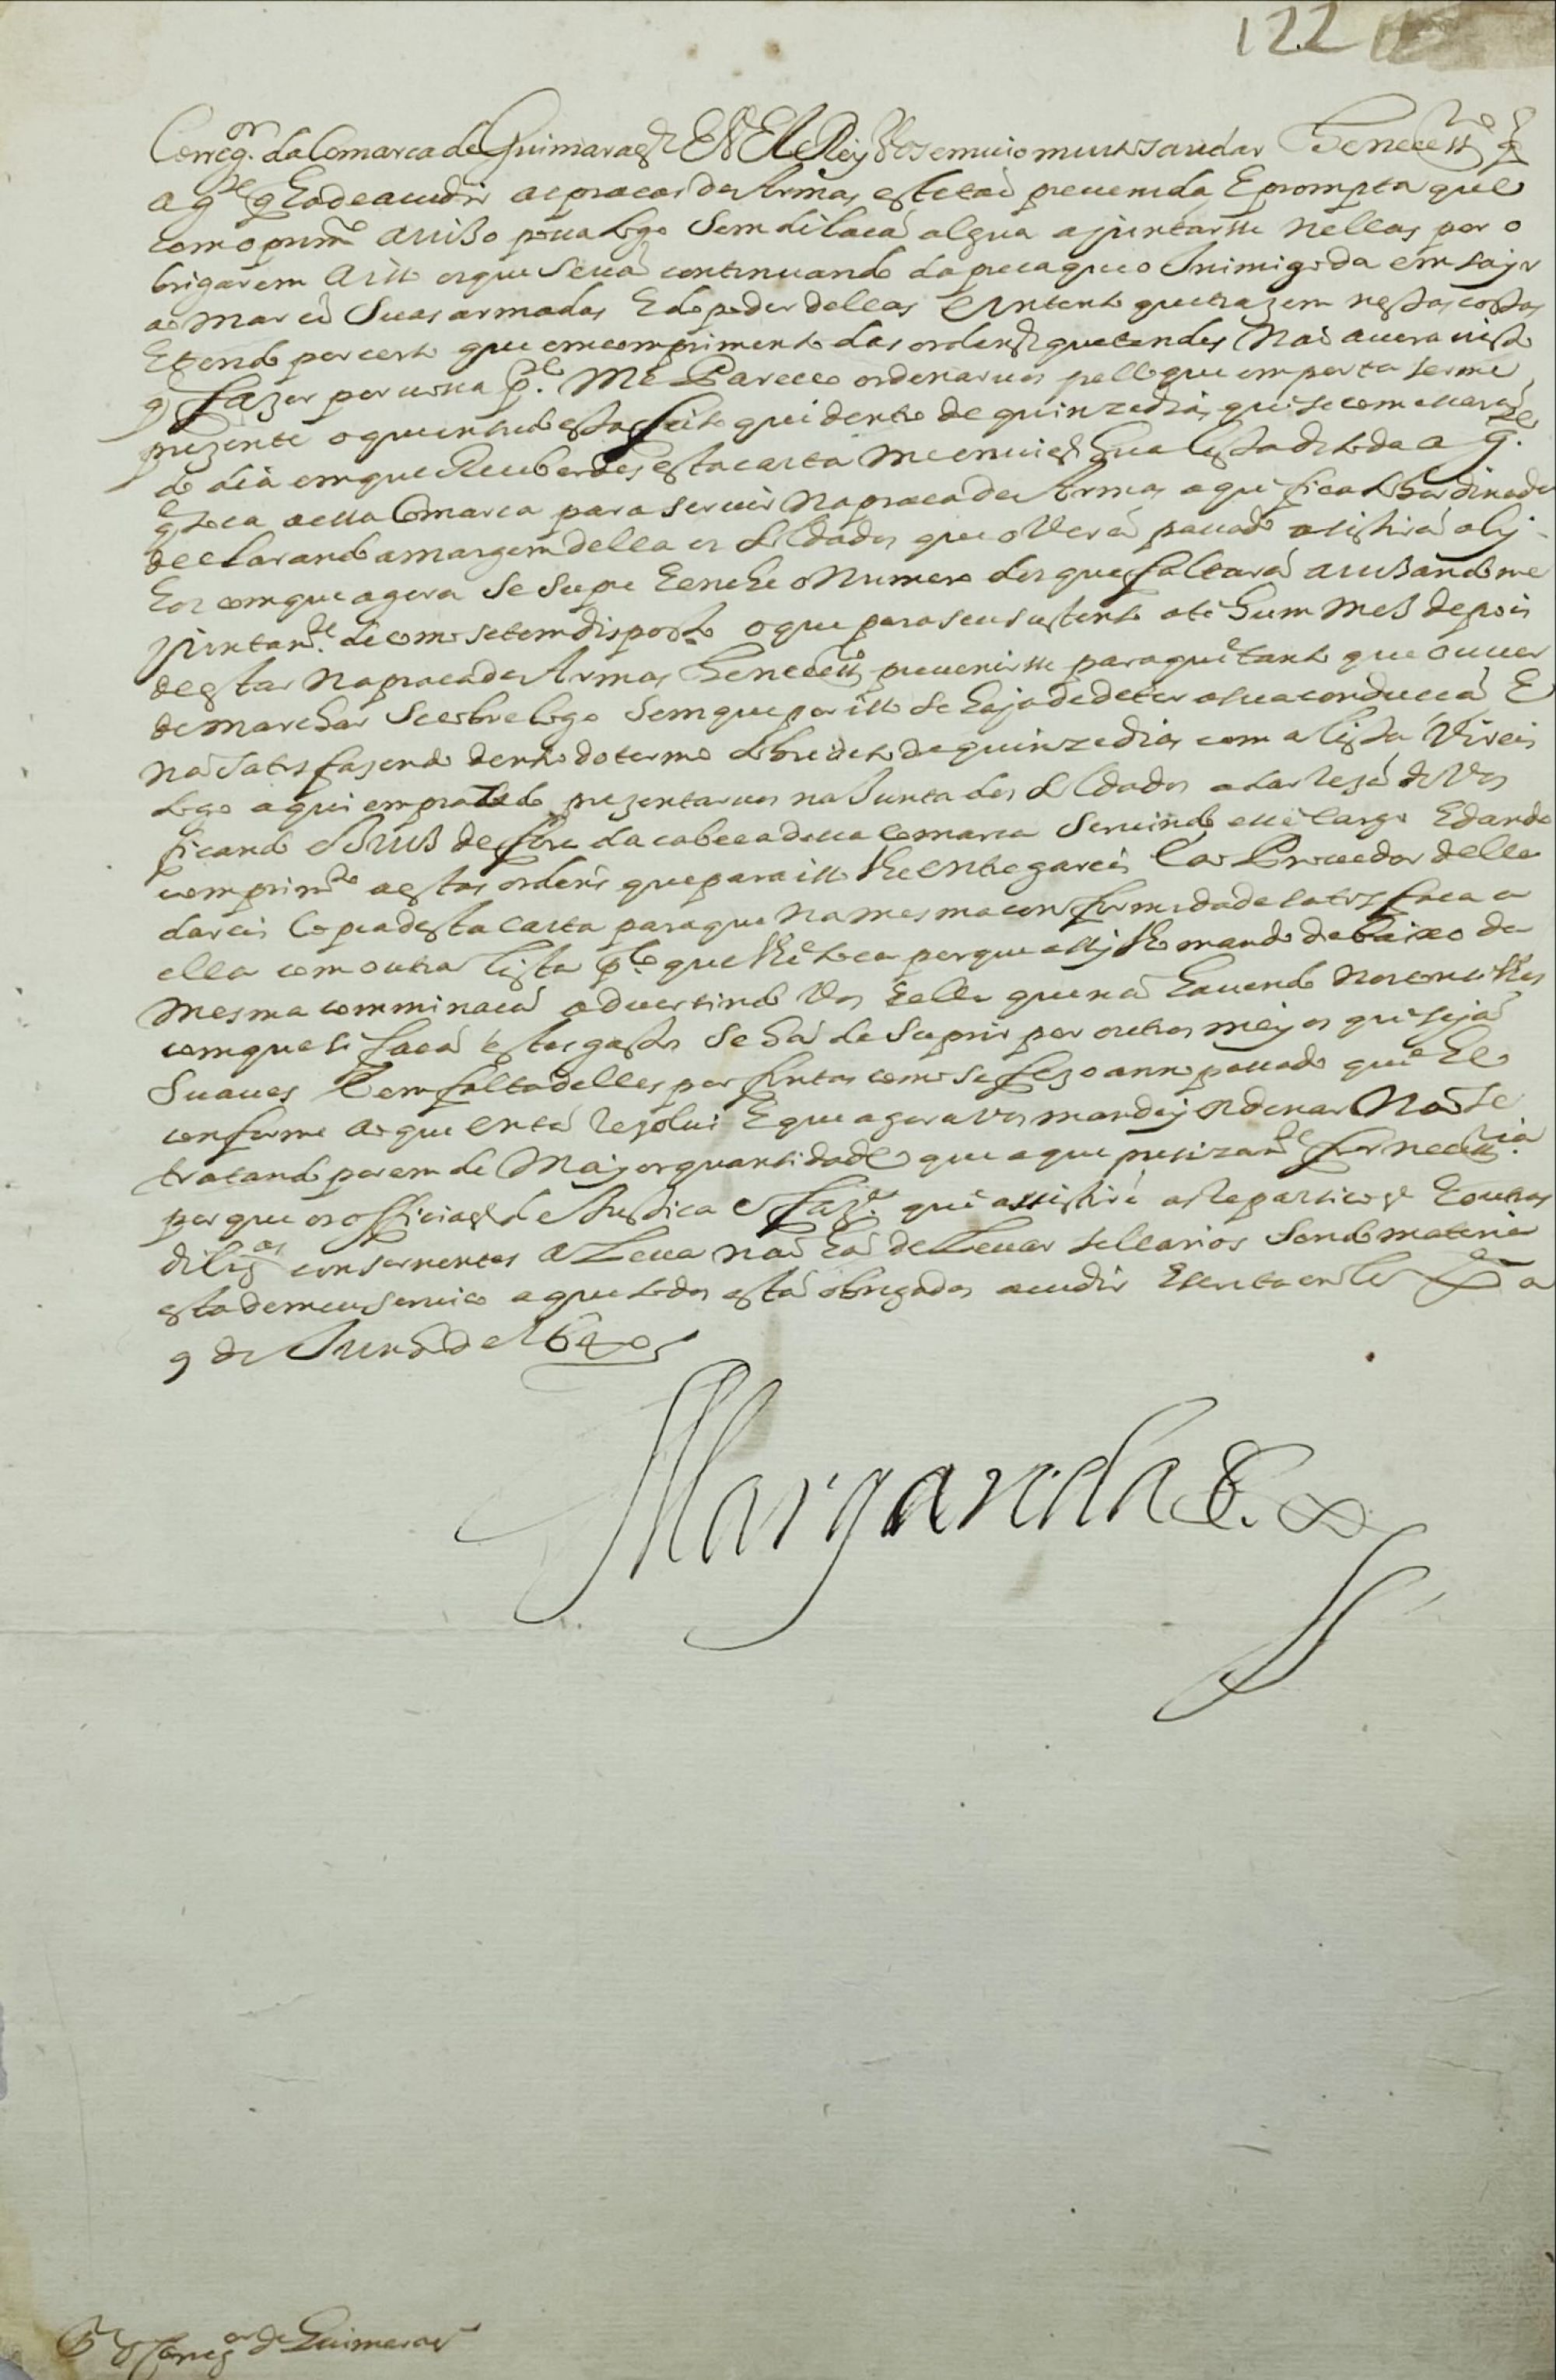 122
Correg.or da Comarca de Guimarães Eu El Rey vos enuio muito saudar He neces.ro q
a g.te q ha de acudir as praças de Armas esté tão preuenida E prompta que
com o prim.ro auiso possa logo sem dilação algũa ajuntarsse nellas por o
brigarem a isto os que se uão continuando da pressa que o Inimigo da em sayr
ao mar cõ suas armadas E do poder dellas e intento que trazem nestas costas
E tendo por certo que em comprimento das ordens que tendes Não auera nisto
q fazer por vossa p.te Me Pareceo ordenaruos pello que importa serme
prezente o que em tudo esta feito que dentro de quinze dias que se comessarão
do dia em que Receberdes esta carta me enuieis hũa lista de toda a g.te
q toca a essa Comarca para seruir na praça de Armas a que fica subordinada
declarando a margem della os soldados que o Verão passado asistirão aly
E os com que agora se supre E enche o Numero dos que faltarão auisandome
juntam.te de como se tem disposto o que para seu sustento até hum mes depois
de estar na praça de Armas he neces.ro preuenirsse para que tanto que ouuer
de marchar se cobre logo sem que por isto se haja de deter a sua condução E
não satisfazendo dentro do termo sobredito de quinze dias com a lista Vireis
logo aqui emprazado prezentaruos na Junta dos soldados a dar rezão de Vos
ficando o Juis de fora da cabeça dessa comarca seruindo esse cargo E dando
comprim.to a estas ordens que para isto lhe entregareis E ao Prouedor della
dareis Copia desta Carta para que na mesma conformidade satisfaça a
ella com outra lista p.lo que lhe toca porque assy lho mando debaixo da
mesma comminação aduertindo Vos E elle que não hauendo nos concelhos
com que se fação estes gastos se hão de suprir por outros meyos que sejão
suaues E em falta delles por fintas como se fez o anno passado que he
conforme ao que então rezolui E que agora vos mandey ordenar Não se
tratando porem de Mayor quantidade que a que precizam.te for necess.ria
porque os officiaes de Justiça e faz.da que assistirẽ as repartições E outras
dilig.as conçernentes a Leua não hão de Leuar sellarios sendo materia
esta de meu seruiço a que todos estão obrigados acudir Escrita em Lx.a a
9 de Junho de 1640
Margarida
P.a o Correg.or de Guimarães